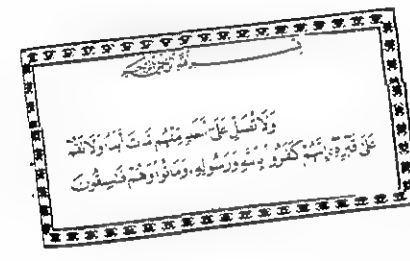 بسم الله الرحمن الرحيم
وَلَا تُصَلِّ عَلَىٰ أَحَدٍ مِنْهُم مَّاتَ أَبَدًا وَلَا تَقُمْ
عَلَىٰ قَبْرِهِ إِنَّهُمْ كَفَرُوا بِاللَّهِ وَرَسُولِهِ وَمَاتُوا وَهُمْ فَاسِقُونَ